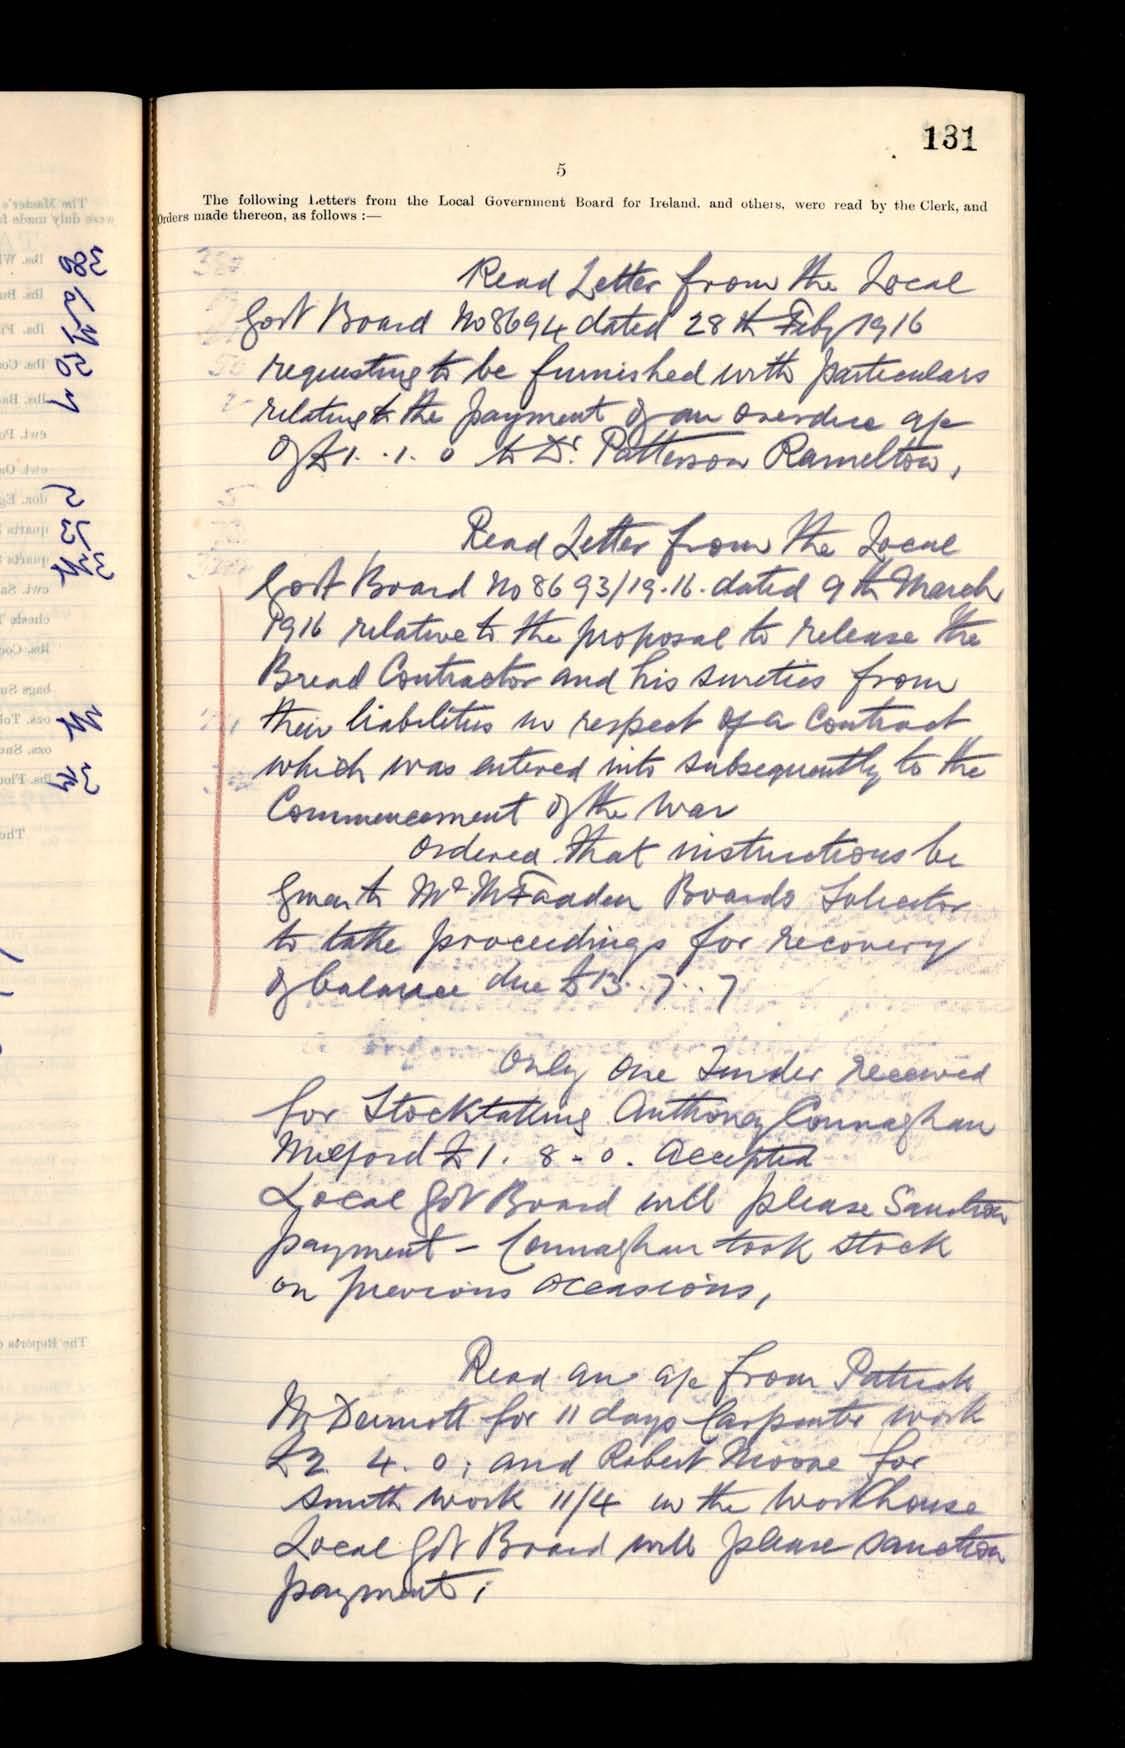 131
5
The following Letters from the Local Government Board for Ireland, and others, were read by the Clerk, and
Orders made thereon, as follows :—
Read Letter from the Local
Govt Board No 8694 dated 28th Feby 1916
requesting to be furnished with particulars
relating to the payment of an overdue a/c
of £1..1.0 to Dr. Patterson Ramelton,
Read Letter from the Local
Govt Board No 8693/19.16. dated 9th March
1916 relative to the proposal to release the
Bread Contractor and his sureties from
their liabilities in respect of a contract
which was entered into subsequently to the
Commencement of the War
Ordered that instructions be
given to Mr McFadden Boards Solicitor
to take proceedings for recovery
of balance due £13..7..7
Only one Tender received
for Stocktaking Anthony Connaghan
Milford £1. 8-0. Accepted
Local Govt Board will please Sanction
payment – Connaghan took stock
on previous occasions,
Read an a/c from Patrick
McDermott for 11 days Carpenter work
£2. 4. 0; and Robert Moore for
Smith work 11/4 in the Workhouse
Local Govt Board will please sanction
payment;